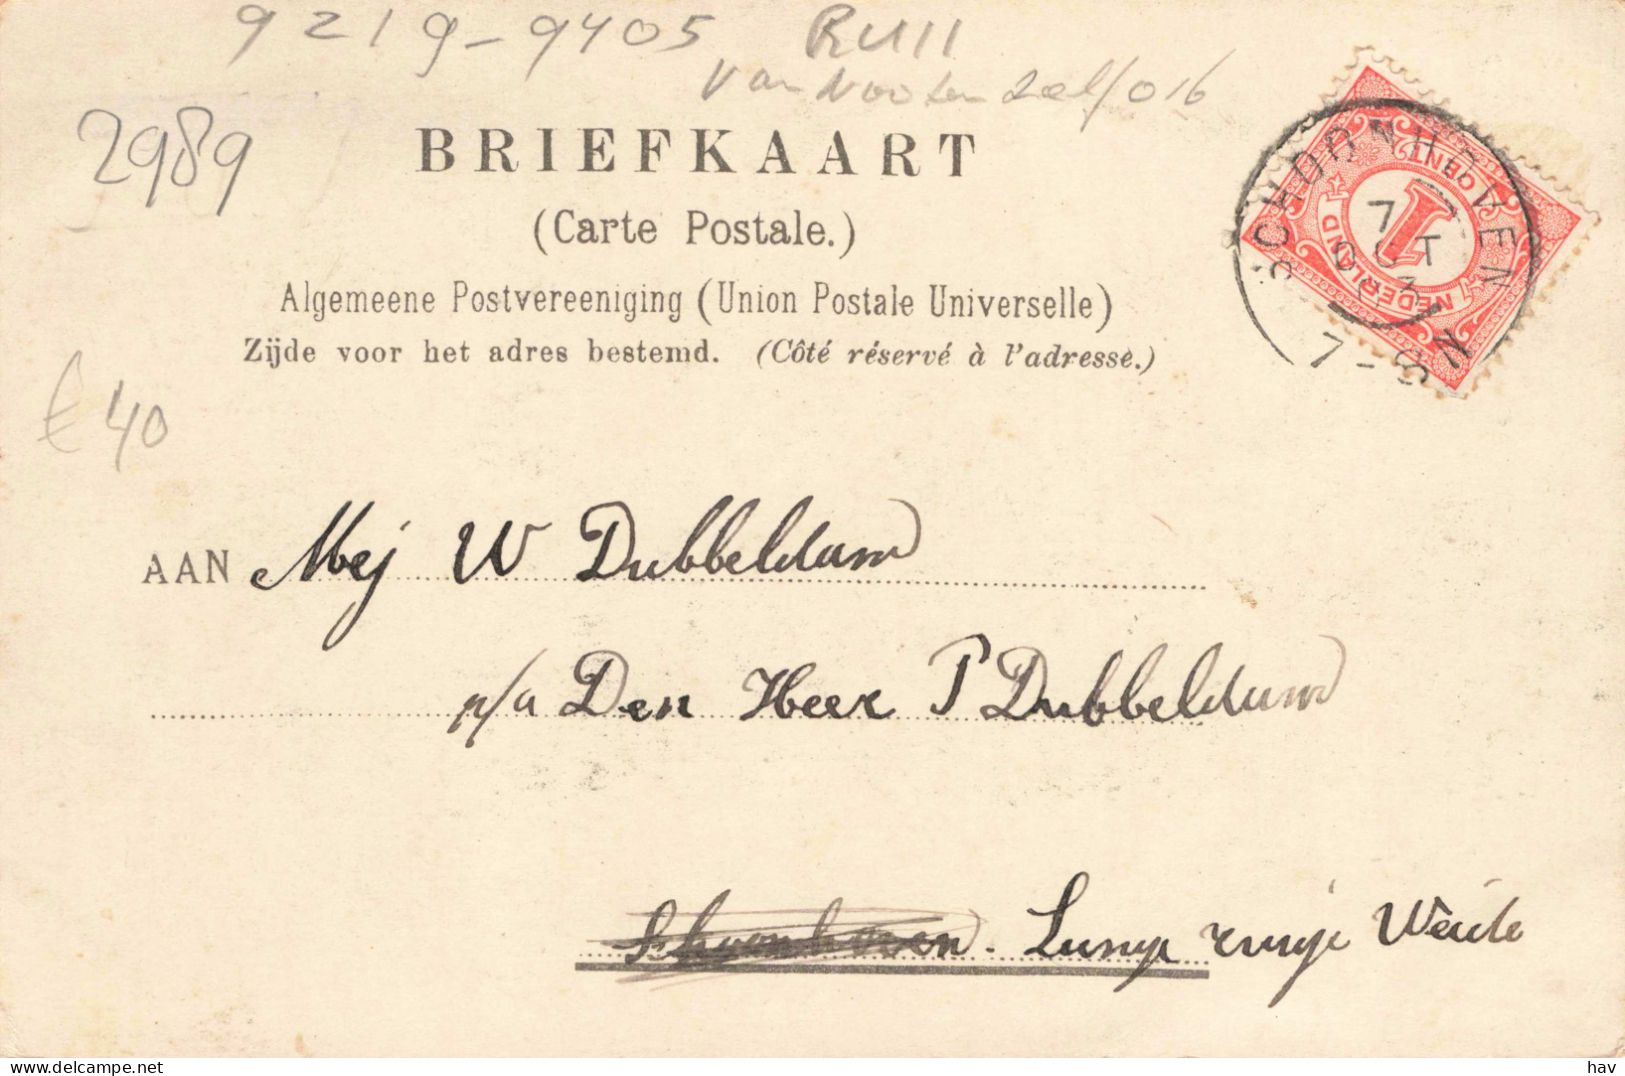 9219-9405 RU11
2989
BRIEFKAART
(Carte Postale.)
Algemeene Postvereeniging (Union Postale Universelle)
Zijde voor het adres bestemd. (Côté réservé à l'adresse.)
SCHOONHOVEN
7
OCT
03
7-8 N
NEDERLAND
1
CENT
€ 40
AAN Mej W Dubbeldam
p/a Den Heer P Dubbeldam
Schoonhoven. Lange ruige Weide
delcampe.net
hav